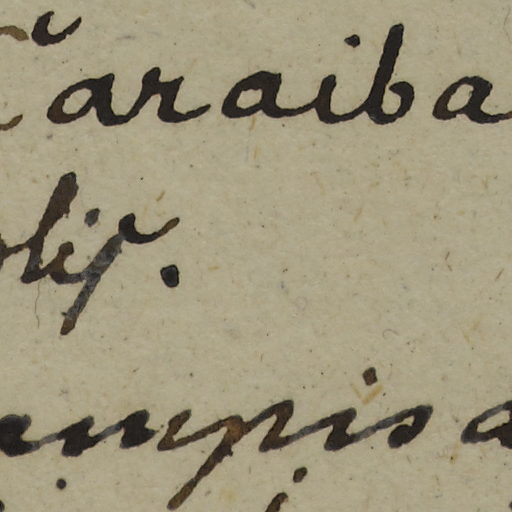 Caraiba
lis.
empis a